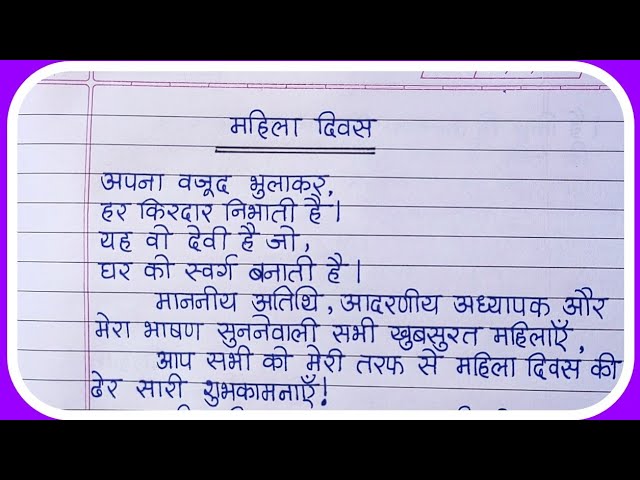 महिला दिवस
अपना वजूद भुलाकर,
हर किरदार निभाती है।
यह वो देवी है जो,
घर को स्वर्ग बनाती है।
माननीय अतिथि, आदरणीय अध्यापक और
मेरा भाषण सुननेवाली सभी खुबसुरत महिलाएँ,
आप सभी को मेरी तरफ से महिला दिवस की
ढेर सारी शुभकामनाएँ!